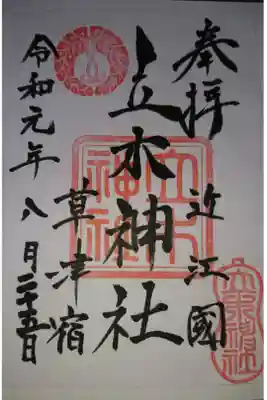 奉拝
近江國
立木神社
草津宿
令和元年八月二十五日
立木神社